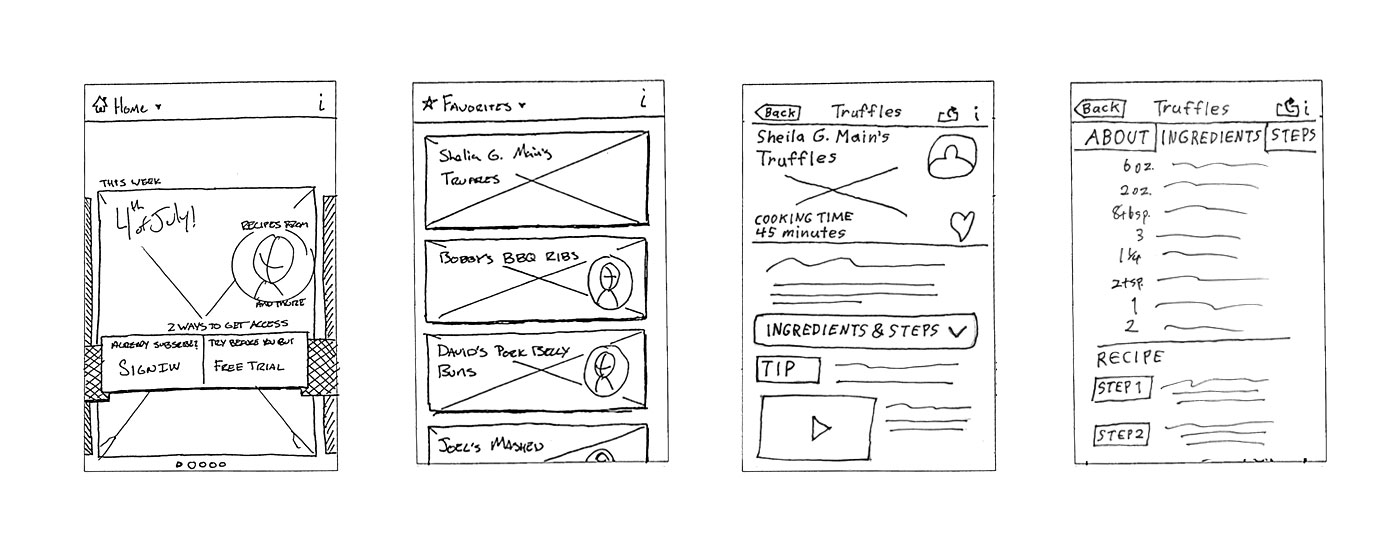 Home
i
THIS WEEK
4th
of July!
RECIPES FROM
AND MORE
2 WAYS TO GET ACCESS
ALREADY SUBSCRIBE?
TRY BEFORE YOU BUY
SIGN IN
FREE TRIAL
FAVORITES
i
Shelia G. Main's
TRUFFLES
BOBBY'S BBQ RIBS
DAVID'S PORK BELLY
BUNS
JOEL'S MASHED
Back
Truffles
i
Sheila G. Main's
Truffles
COOKING TIME
45 minutes
INGREDIENTS & STEPS
TIP
Back
Truffles
i
ABOUT
INGREDIENTS
STEPS
6 oz.
2 oz.
8 tbsp.
3
1 1/4
2 tsp.
1
2
RECIPE
STEP 1
STEP 2